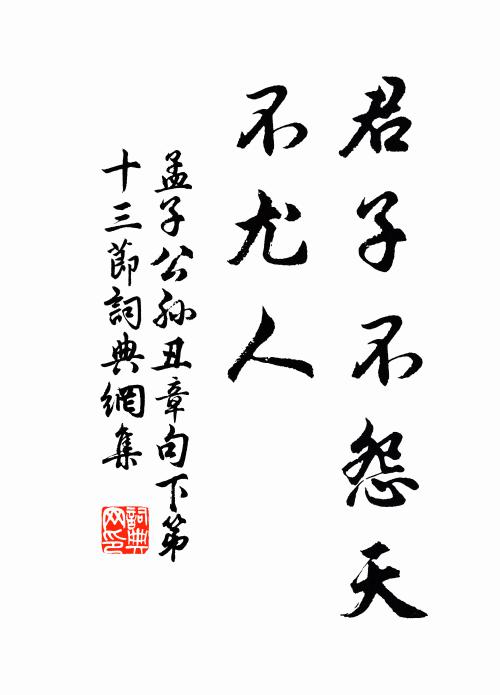 君子不怨天
不尤人
孟子公孫丑章句下第
十三節詞典網集
詞典
网印